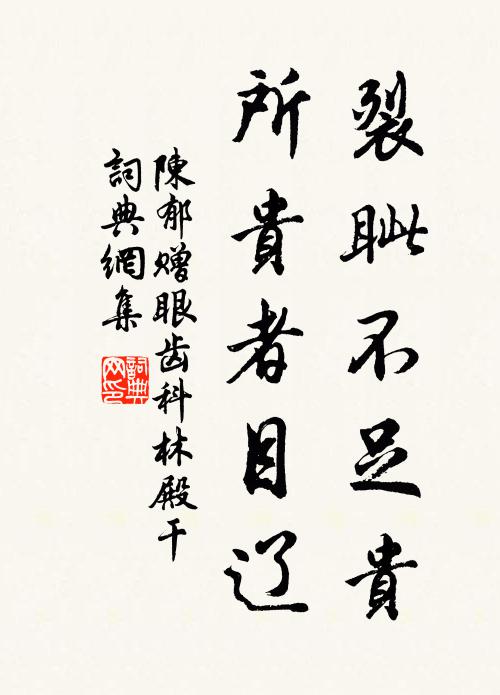 裂眦不足貴
所貴者目辽
陳郁赠眼齿科林殿干
詞典網集
詞典网印